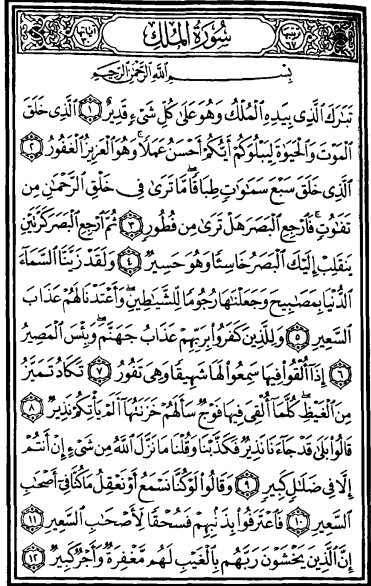 سُورَةُ المُلكِ
بِسْمِ اللَّهِ الرَّحْمَٰنِ الرَّحِيمِ
تَبَٰرَكَ الَّذِى بِيَدِهِ الْمُلْكُ وَهُوَ عَلَىٰ كُلِّ شَىْءٍ قَدِيرٌ ۝١ الَّذِى خَلَقَ
الْمَوْتَ وَالْحَيَوٰةَ لِيَبْلُوَكُمْ أَيُّكُمْ أَحْسَنُ عَمَلًا ۚ وَهُوَ الْعَزِيزُ الْغَفُورُ ۝٢
الَّذِى خَلَقَ سَبْعَ سَمَٰوَٰتٍ طِبَاقًا ۖ مَّا تَرَىٰ فِى خَلْقِ الرَّحْمَٰنِ مِن
تَفَٰوُتٍ ۖ فَارْجِعِ الْبَصَرَ هَلْ تَرَىٰ مِن فُطُورٍ ۝٣ ثُمَّ ارْجِعِ الْبَصَرَ كَرَّتَيْنِ
يَنقَلِبْ إِلَيْكَ الْبَصَرُ خَاسِئًا وَهُوَ حَسِيرٌ ۝٤ وَلَقَدْ زَيَّنَّا السَّمَآءَ
الدُّنْيَا بِمَصَٰبِيحَ وَجَعَلْنَٰهَا رُجُومًا لِّلشَّيَٰطِينِ ۖ وَأَعْتَدْنَا لَهُمْ عَذَابَ
السَّعِيرِ ۝٥ وَلِلَّذِينَ كَفَرُوا۟ بِرَبِّهِمْ عَذَابُ جَهَنَّمَ ۖ وَبِئْسَ الْمَصِيرُ
۝٦ إِذَآ أُلْقُوا۟ فِيهَا سَمِعُوا۟ لَهَا شَهِيقًا وَهِىَ تَفُورُ ۝٧ تَكَادُ تَمَيَّزُ
مِنَ الْغَيْظِ ۖ كُلَّمَآ أُلْقِىَ فِيهَا فَوْجٌ سَأَلَهُمْ خَزَنَتُهَآ أَلَمْ يَأْتِكُمْ نَذِيرٌ ۝٨
قَالُوا۟ بَلَىٰ قَدْ جَآءَنَا نَذِيرٌ فَكَذَّبْنَا وَقُلْنَا مَا نَزَّلَ اللَّهُ مِن شَىْءٍ إِنْ أَنتُمْ
إِلَّا فِى ضَلَٰلٍ كَبِيرٍ ۝٩ وَقَالُوا۟ لَوْ كُنَّا نَسْمَعُ أَوْ نَعْقِلُ مَا كُنَّا فِىٓ أَصْحَٰبِ
السَّعِيرِ ۝١٠ فَاعْتَرَفُوا۟ بِذَنۢبِهِمْ فَسُحْقًا لِّأَصْحَٰبِ السَّعِيرِ ۝١١
إِنَّ الَّذِينَ يَخْشَوْنَ رَبَّهُم بِالْغَيْبِ لَهُم مَّغْفِرَةٌ وَأَجْرٌ كَبِيرٌ ۝١٢